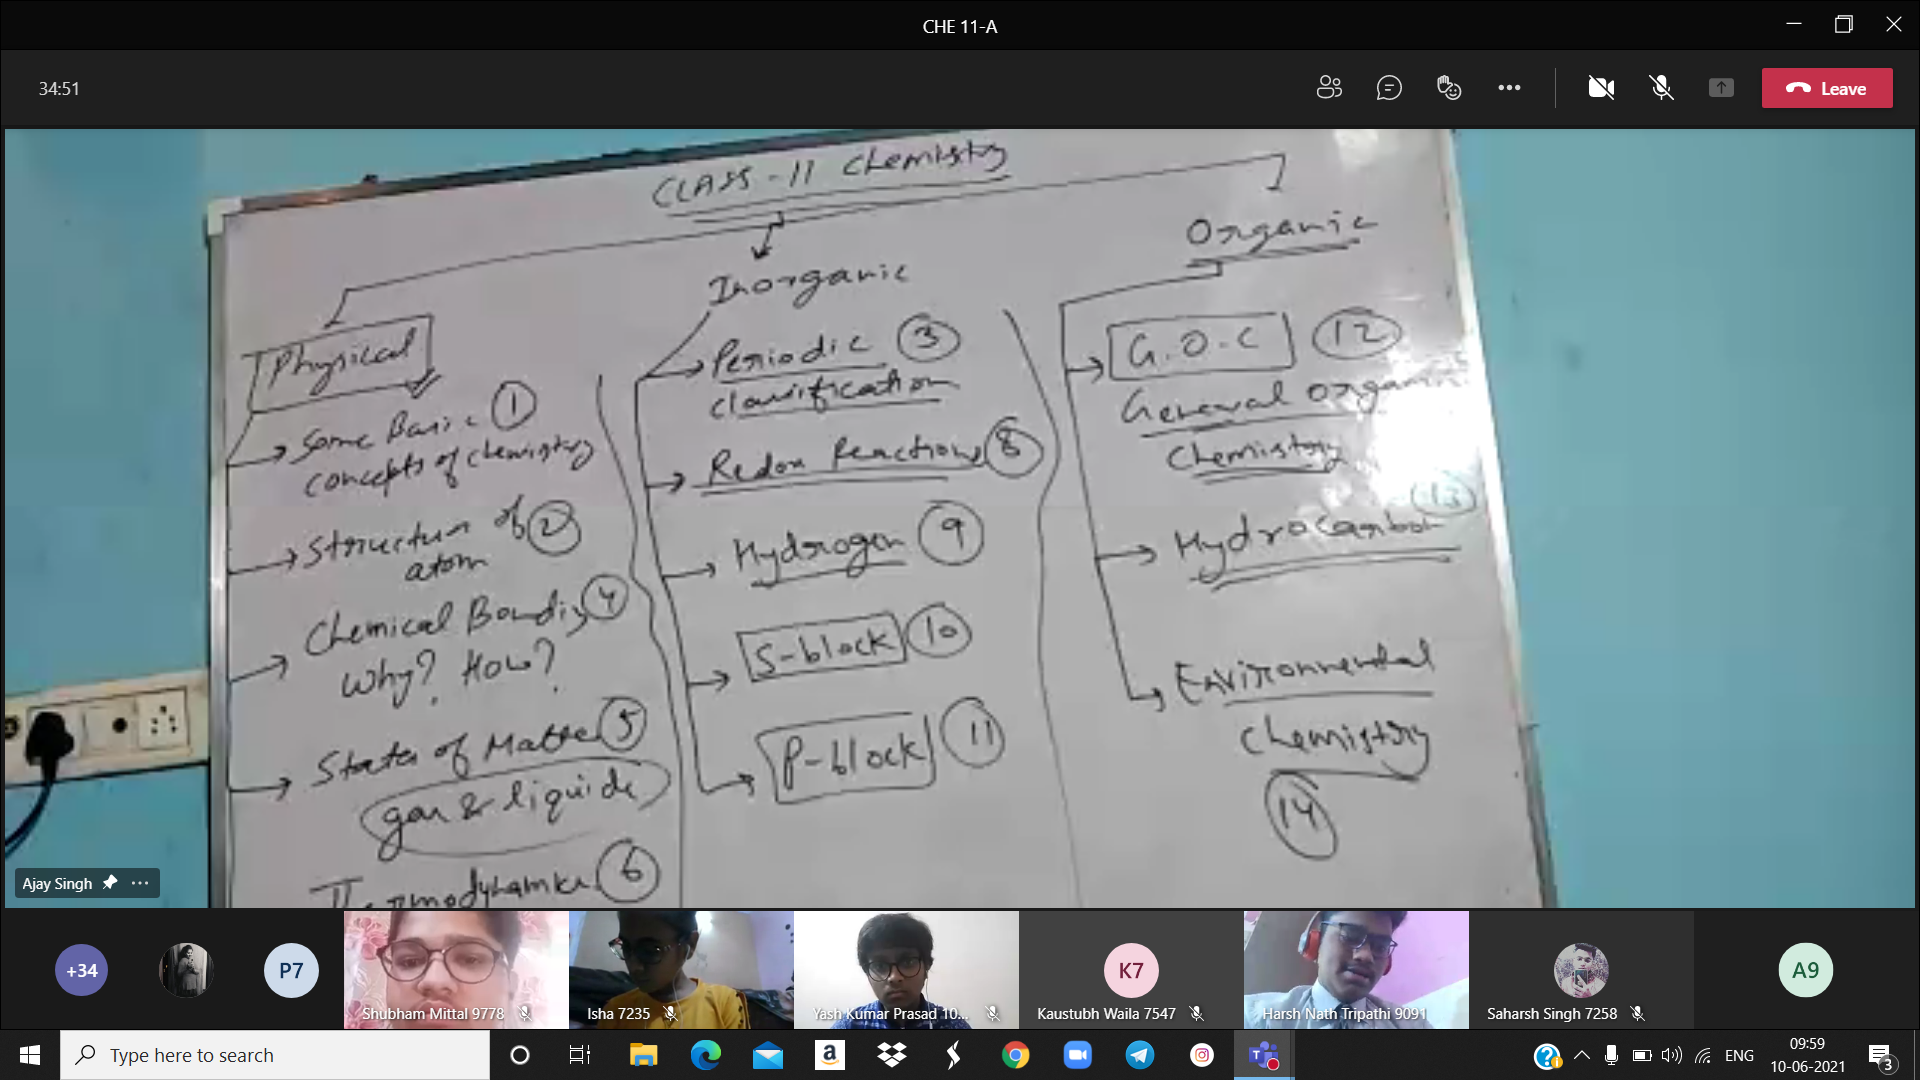 CHE 11-A
34:51
Leave
CLASS-11 Chemistry
Physical
Some Basic 1
concepts of chemistry
Structure of 2
atom
Chemical Bonding 4
Why? How?
States of Matter 5
gas & liquids
Thermodynamics 6
Inorganic
Periodic 3
classification
Redox Reactions 8
Hydrogen 9
S-block 10
P-block 11
Organic
G.O.C 12
General organic
Chemistry
13
Hydrocarbon
Environmental
Chemistry
14
Ajay Singh
+34
P7
Shubham Mittal 9778
Isha 7235
Yash Kumar Prasad 10...
K7
Kaustubh Waila 7547
Harsh Nath Tripathi 9091
Saharsh Singh 7258
A9
Type here to search
a
ENG
09:59
10-06-2021
3